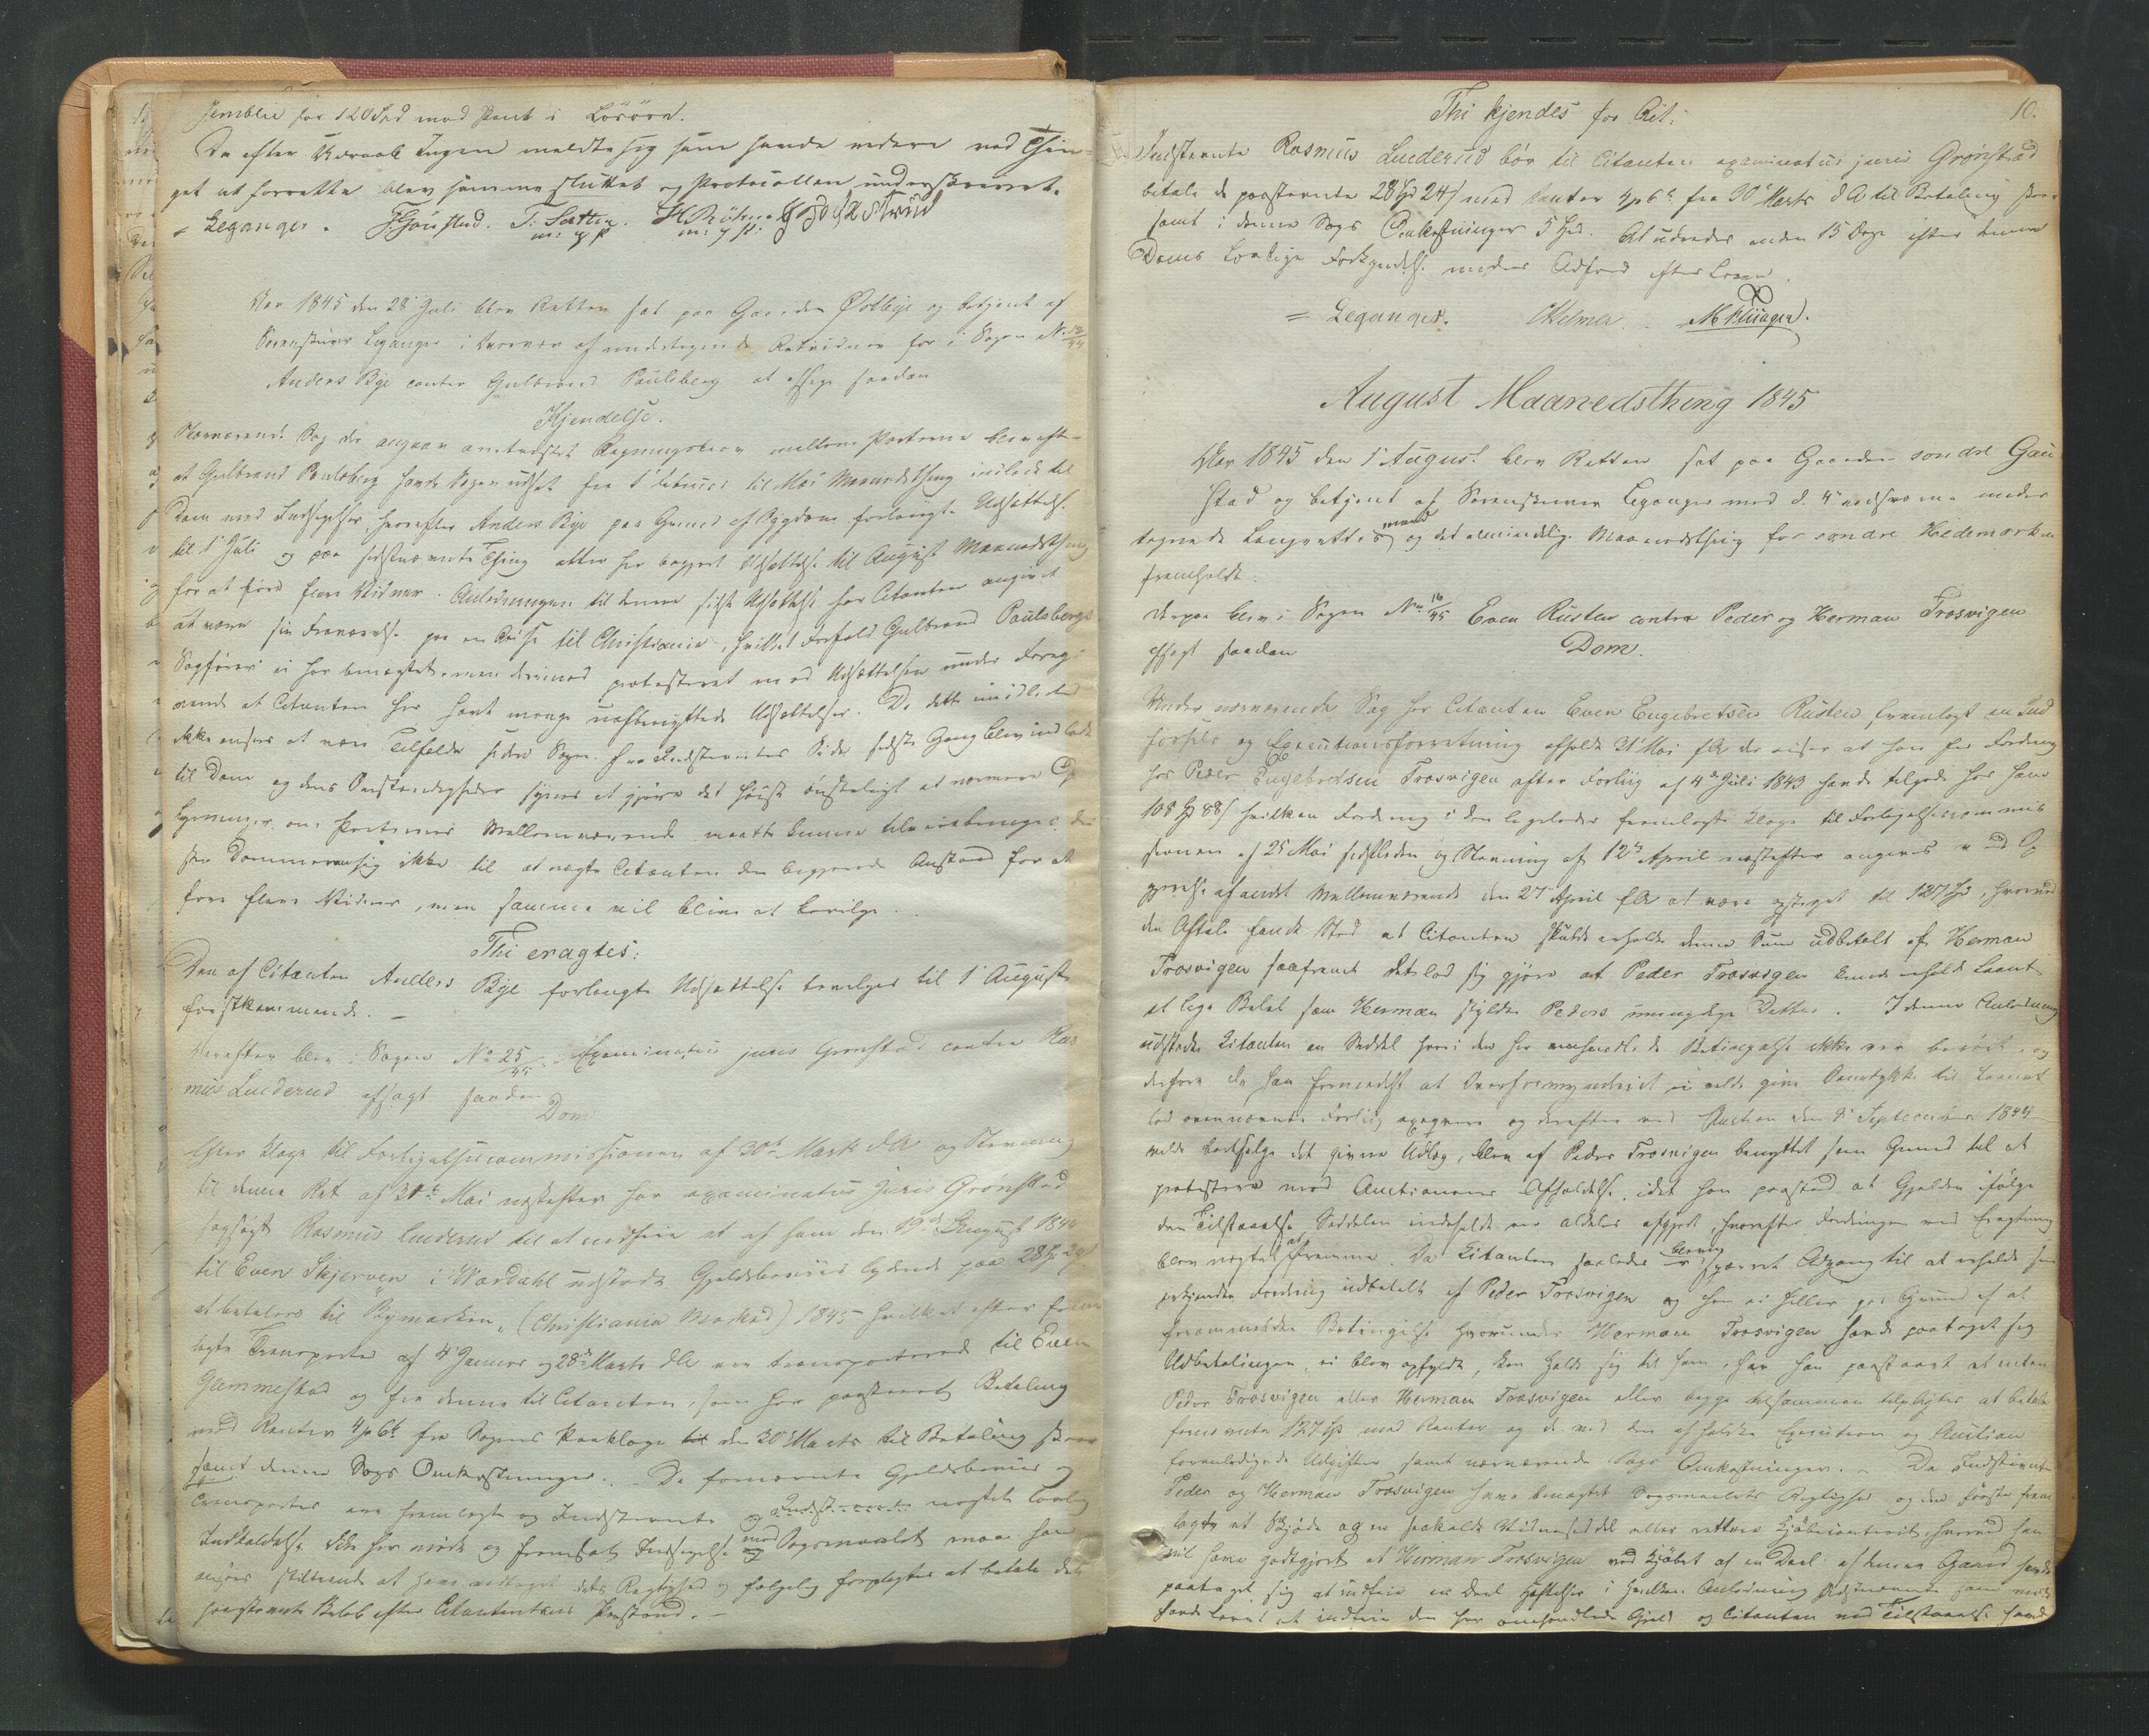 Jemblie for 120 Spd mod Pant i Lösöre.
Da efter Udraab Ingen meldte sig som havde videre ved Thin-
get at forrette blev samme sluttet og Protocollen underskrevet.
Leganger. F. Gönstad. T. Sætten. H. Böhmer
m: p m: p:
Aar 1845 den 28 Juli blev Retten sat paa Gaarden Östbye og betjent af
Sorenskriver Leganger i Nærvær af undertegnede Retsvidner for i Sagen No
Anders Bye contra Gulbrand Paulsberg at afsige saadan
Kjendelse.
Nærværende Sag der angaar omtvistet Regningskrav mellem Parterne blev efter
at Gulbrand Paulsberg havde Sagen udsat fra 1 Februar til Mai Maanedsthing indladt til
Dom med Indsigelser, hvorefter Anders Bye paa Grund af Sygdom forlangte Udsættelse
til 1 Juli og paa sidstnævnte Thing atter har begjært Udsættelse til August Maanedsthing
for at före flere Vidner. Anledningen til denne sidste Udsættelse har Citanten angivet
at være sin Fraværelse paa en Reise til Christiania, hvilket Forfald Gulbrand Paulsbergs
Sagförer ei har benægtet, men derimod protesteret mod Udsættelsen under Foregi-
vende at Citanten har havt mange uafbenyttede Udsættelser. Da dette imidlertid
ikke ansees at være Tilfældet siden Sagen fra Indstevntes Side sidste Gang blev indladt
til Dom og dens Omstændigheder synes at gjöre det höist önskeligt at nærmere Op-
lysninger om Parternes Mellemværende maatte kunne tilveiebringes,
ser Dommeren sig ikke til at nægte Citanten den begjærede Anstand for at
före flere Vidner, men samme vil blive at bevilge.
Thi eragtes:
Den af Citanten Anders Bye forlangte Udsættelse bevilges til 1 August
förstkommende. –
Derefter blev i Sagen No 25/45 Examinatus juris Grönstad contra Ras-
mus Luderud afsagt saadan
Dom
Efter Klage til Forligelsescommissionen af 30te Marts d.A. og Stevning
til denne Ret af 31te Mai næstefter har examinatus juris Grönstad
sagsögt Rasmus Luderud til at indfrie et af ham den 19de August 1844
til Even Skjerven i Wardahl udstedt Gjeldsbeviis lydende paa 28 Spd 24 s
at betales til "Rymarken" (Christiania Marked) 1845 hvilket efter frem-
lagte Transporter af 4 Januar og 28de Marts d.A. er transporteret til Even
Glemmestad og fra denne til Citanten, som har paastaaet Betaling
med Renter 4 p Ct fra Sagens Paaklage den 30 Marts til Betaling skeer
samt denne Sags Omkostninger. – Da fornævnte Gjeldsbeviis og
Transporter ere fremlagte og Indstevnte og uagtet lovlig
Indkaldelse ikke har mödt og fremsat Indsigelse mod Sögsmaalet maa han
ansees stiltiende at have vedtaget dets Rigtighed og fölgelig forpligtes at betale det
paastevnte Belöb efter Citantens Paastand. –
10.
Thi kjendes for Ret:
Indstevnte Rasmus Luderud bör til Citanten examinatus juris Grönstad
betale de paastevnte 28 Spd 24 s med Renter 4 p Ct fra 30 Marts d A til Betaling skeer
samt i denne Sags Omkostninger 5 Spd. At udredes inden 15 Dage efter denne
Doms lovlige Forkyndelse under Adfærd efter Loven.
Leganger.
August Maanedsthing 1845
Aar 1845 den 1 August blev Retten sat paa Gaarden söndre Gau-
stad og betjent af Sorenskriver Leganger med d. 4 edsvorne under-
tegnede Laugrettesmænd og det almindelige Maanedsthing for söndre Hedemarken
fremholdt.
Derpaa blev i Sagen No 16/45 Even Rusten contra Peder og Herman Trosvigen
afsagt saadan Dom.
Under nærværende Sag har Citanten Even Engebretsen Rusten fremlagt en Ind-
försels og Executionsforretning afholdt 31 Mai f.A. der viser at han for Fordring
hos Peder Engebretsen Trosvigen efter Forliig af 4de Juli 1843 havde tilgode hos ham
108 Spd 88 s hvilken Fordring i den ligeledes fremlagte Klage til Forligelsescommis-
sionen af 25 Mai og Stevning af 12te April næstefter angives ved Op-
gjörelse af andet Mellemværende den 27 April f.A. at være opsteget til 127 Spd, hvorved
den Aftale fandt Sted at Citanten skulde erholde denne Sum udbetalt af Herman
Trosvigen saafremt det lod sig gjöre at Peder Trosvigen kunde erholde laant
et lige Belöb som Herman skyldte Peders umyndige Datter. I denne Anledning
udstedte Citanten en Seddel hvori den her omhandlede Betingelse ikke var berört, og
derfor da han formedelst at Overformynderiet ei vilde give Samtykke til Laanet
lod ovennævnte Forliig exeqvere og derefter ved Auction den September 1844
vilde bortsælge det givne Udlæg, blev af Peder Trosvigen benyttet som Grund til at
protestere mod Auctionens Afholdelse, idet han paastod at Gjelden ifölge
den Tilstaaelse Seddelen indeholdt var aldeles afgjort, hvorefter Fordringen ved Eragtning
blev nægtet at fremme. Da Citanten saaledes er berövet Adgang til at erholde sin
erkjendte Fordring udbetalt af Peder Trosvigen og han ei heller paa Grund af at
foranmeldte Betingelse hvorunder Herman Trosvigen havde paataget sig
Udbetalingen, ei blev opfyldt, kan holde sig til ham, har han paastaaet at enten
Peder Trosvigen eller Herman Trosvigen eller begge tilsammen tilpligtes at betale
fornævnte 127 Spd med Renter og de ved den afholdte Execution og Auction
foranledigede Udgifter samt nærværende Sags Omkostninger. – Da Indstevnte
Peder og Herman Trosvigen have benægtet Sögsmaalets Rigtighed og den förste frem-
lagt et Skjöde og en saakaldt Vidneseddel eller rettere Kjöbecontract, hvorved han
vil have godtgjort at Herman Trosvigen ved Kjöbet af en Deel af denne Gaard havde
paataget sig at indfrie en Deel Heftelser i hvilken Anledning sidstnævnte
havde lovet at indfrie den her omhandlede Gjeld og Citanten ved Tilstaaelse havde